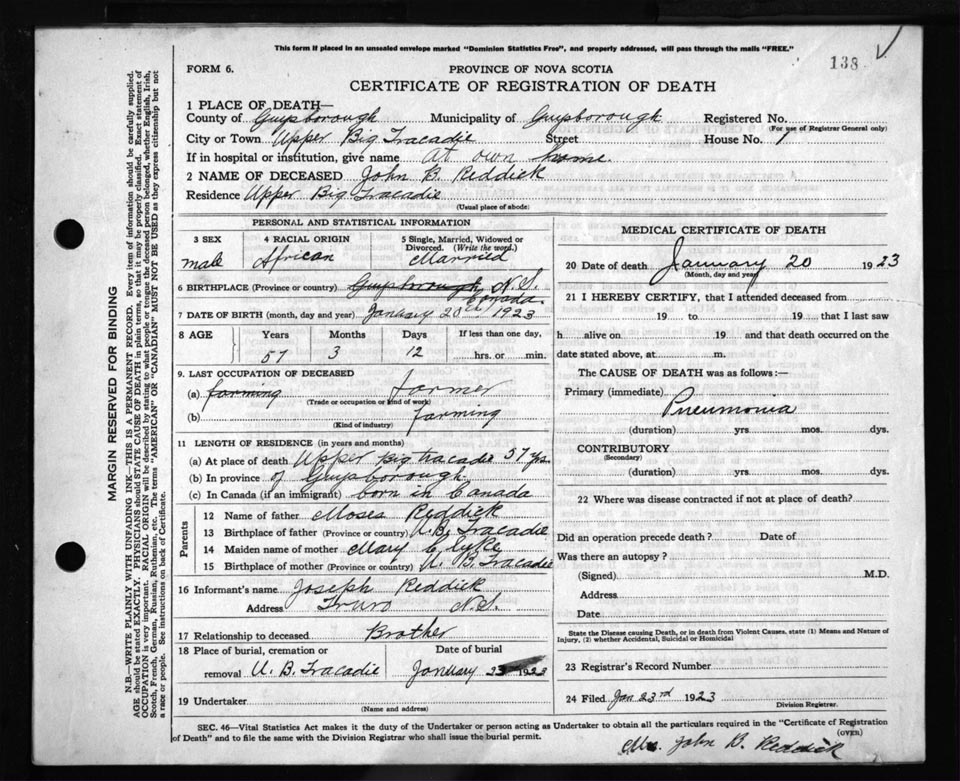 This form if placed in an unsealed envelope marked "Dominion Statistics Free", and properly addressed, will pass through the mails "FREE."
138
FORM 6.
PROVINCE OF NOVA SCOTIA
CERTIFICATE OF REGISTRATION OF DEATH
1 PLACE OF DEATH—
County of Guysborough Municipality of Guysborough Registered No.
(For use of Registrar General only)
City or Town Upper Big Tracadie Street House No. 1
If in hospital or institution, give name at own home.
2 NAME OF DECEASED John B. Reddick
Residence Upper Big Tracadie
(Usual place of abode)
PERSONAL AND STATISTICAL INFORMATION
3 SEX 4 RACIAL ORIGIN 5 Single, Married, Widowed or Divorced. (Write the word.)
male African Married
6 BIRTHPLACE (Province or country) Guysborough N.S. Canada.
7 DATE OF BIRTH (month, day and year) January 20th 1923
8 AGE Years Months Days If less than one day,
57 3 12 hrs. or min.
9. LAST OCCUPATION OF DECEASED
(a) farming farmer
(Trade or occupation or kind of work)
(b) farming
(Kind of industry)
11 LENGTH OF RESIDENCE (in years and months)
(a) At place of death Upper Big Tracadie 57 yrs
(b) In province of Guysborough
(c) In Canada (if an immigrant) born in Canada
Parents
12 Name of father Moses Reddick
13 Birthplace of father (Province or country) U. B. Tracadie
14 Maiden name of mother Mary
15 Birthplace of mother (Province or country) U. B. Tracadie
16 Informant's name Joseph Reddick
Address Truro N.S.
17 Relationship to deceased Brother
18 Place of burial, cremation or Date of burial
removal U. B. Tracadie January 23 1923
19 Undertaker
(Name and address)
MEDICAL CERTIFICATE OF DEATH
20 Date of death January 20 1923
(Month, day and year)
21 I HEREBY CERTIFY, that I attended deceased from
19 to 19 that I last saw
h alive on 19 and that death occurred on the
date stated above, at m.
The CAUSE OF DEATH was as follows:—
Primary (immediate)
Pneumonia
(duration) yrs. mos. dys.
CONTRIBUTORY
(Secondary)
(duration) yrs. mos. dys.
22 Where was disease contracted if not at place of death?
Did an operation precede death? Date of
Was there an autopsy?
(Signed) M.D.
Address
Date
State the Disease causing Death, or in death from Violent Causes, state (1) Means and Nature of
Injury, (2) whether Accidental, Suicidal or Homicidal
23 Registrar's Record Number
24 Filed Jan 23rd 1923
Division Registrar.
SEC. 46—Vital Statistics Act makes it the duty of the Undertaker or person acting as Undertaker to obtain all the particulars required in the "Certificate of Registration
of Death" and to file the same with the Division Registrar who shall issue the burial permit.
(OVER)
Mrs. John B. Reddick
MARGIN RESERVED FOR BINDING
N.B.—WRITE PLAINLY WITH UNFADING INK—THIS IS A PERMANENT RECORD. Every item of information should be carefully supplied.
AGE should be stated EXACTLY. PHYSICIANS should STATE CAUSE OF DEATH in plain terms, so that it may be properly classified. Exact statement of
OCCUPATION is very important. RACIAL ORIGIN will be described by stating to what people or tongue the deceased person belonged, whether English, Irish,
Scotch, French, German, Russian, Ruthenian, etc. The terms "AMERICAN" or "CANADIAN" MUST NOT BE USED as they express citizenship but not
a race or people. See instructions on back of Certificate.